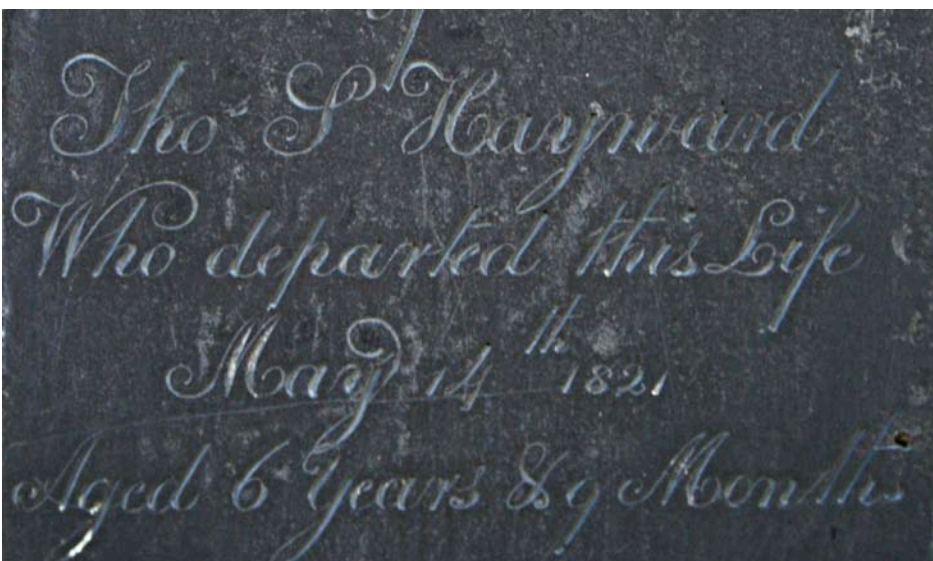 Tho S Hayward
Who departed this Life
May 14th 1821
Aged 6 Years & 9 Months